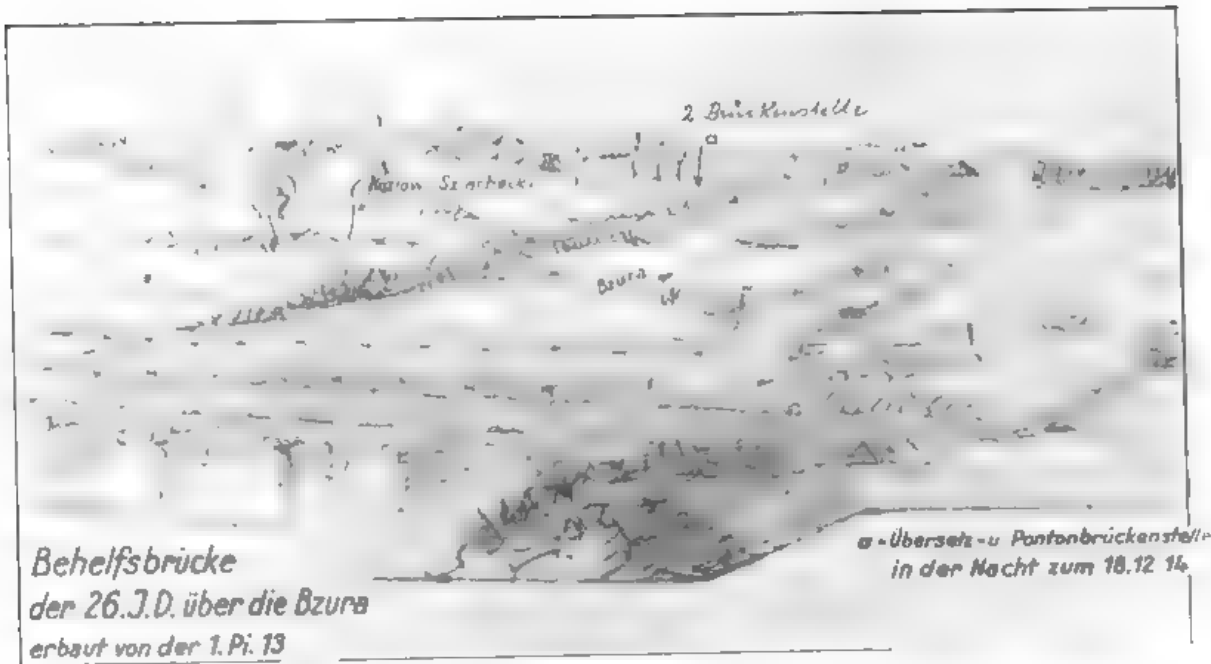 2 Brückenstelle
a
Bzura
Behelfsbrücke
der 26.J.D. über die Bzura
erbaut von der 1. Pi. 13
a-Übersetz-u Pontonbrückenstelle
in der Nacht zum 18.12 14